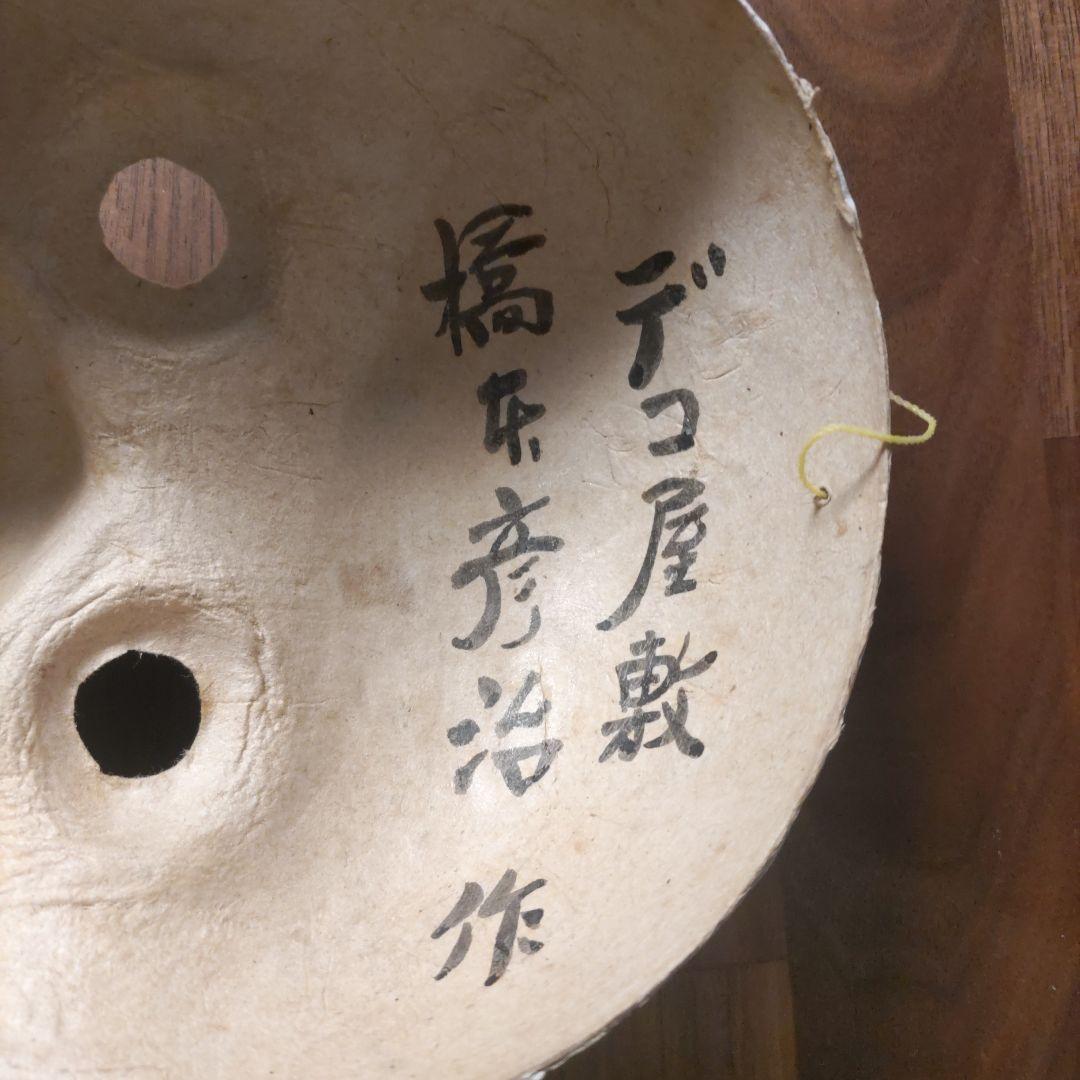 デコ屋敷
橋本彦治 作